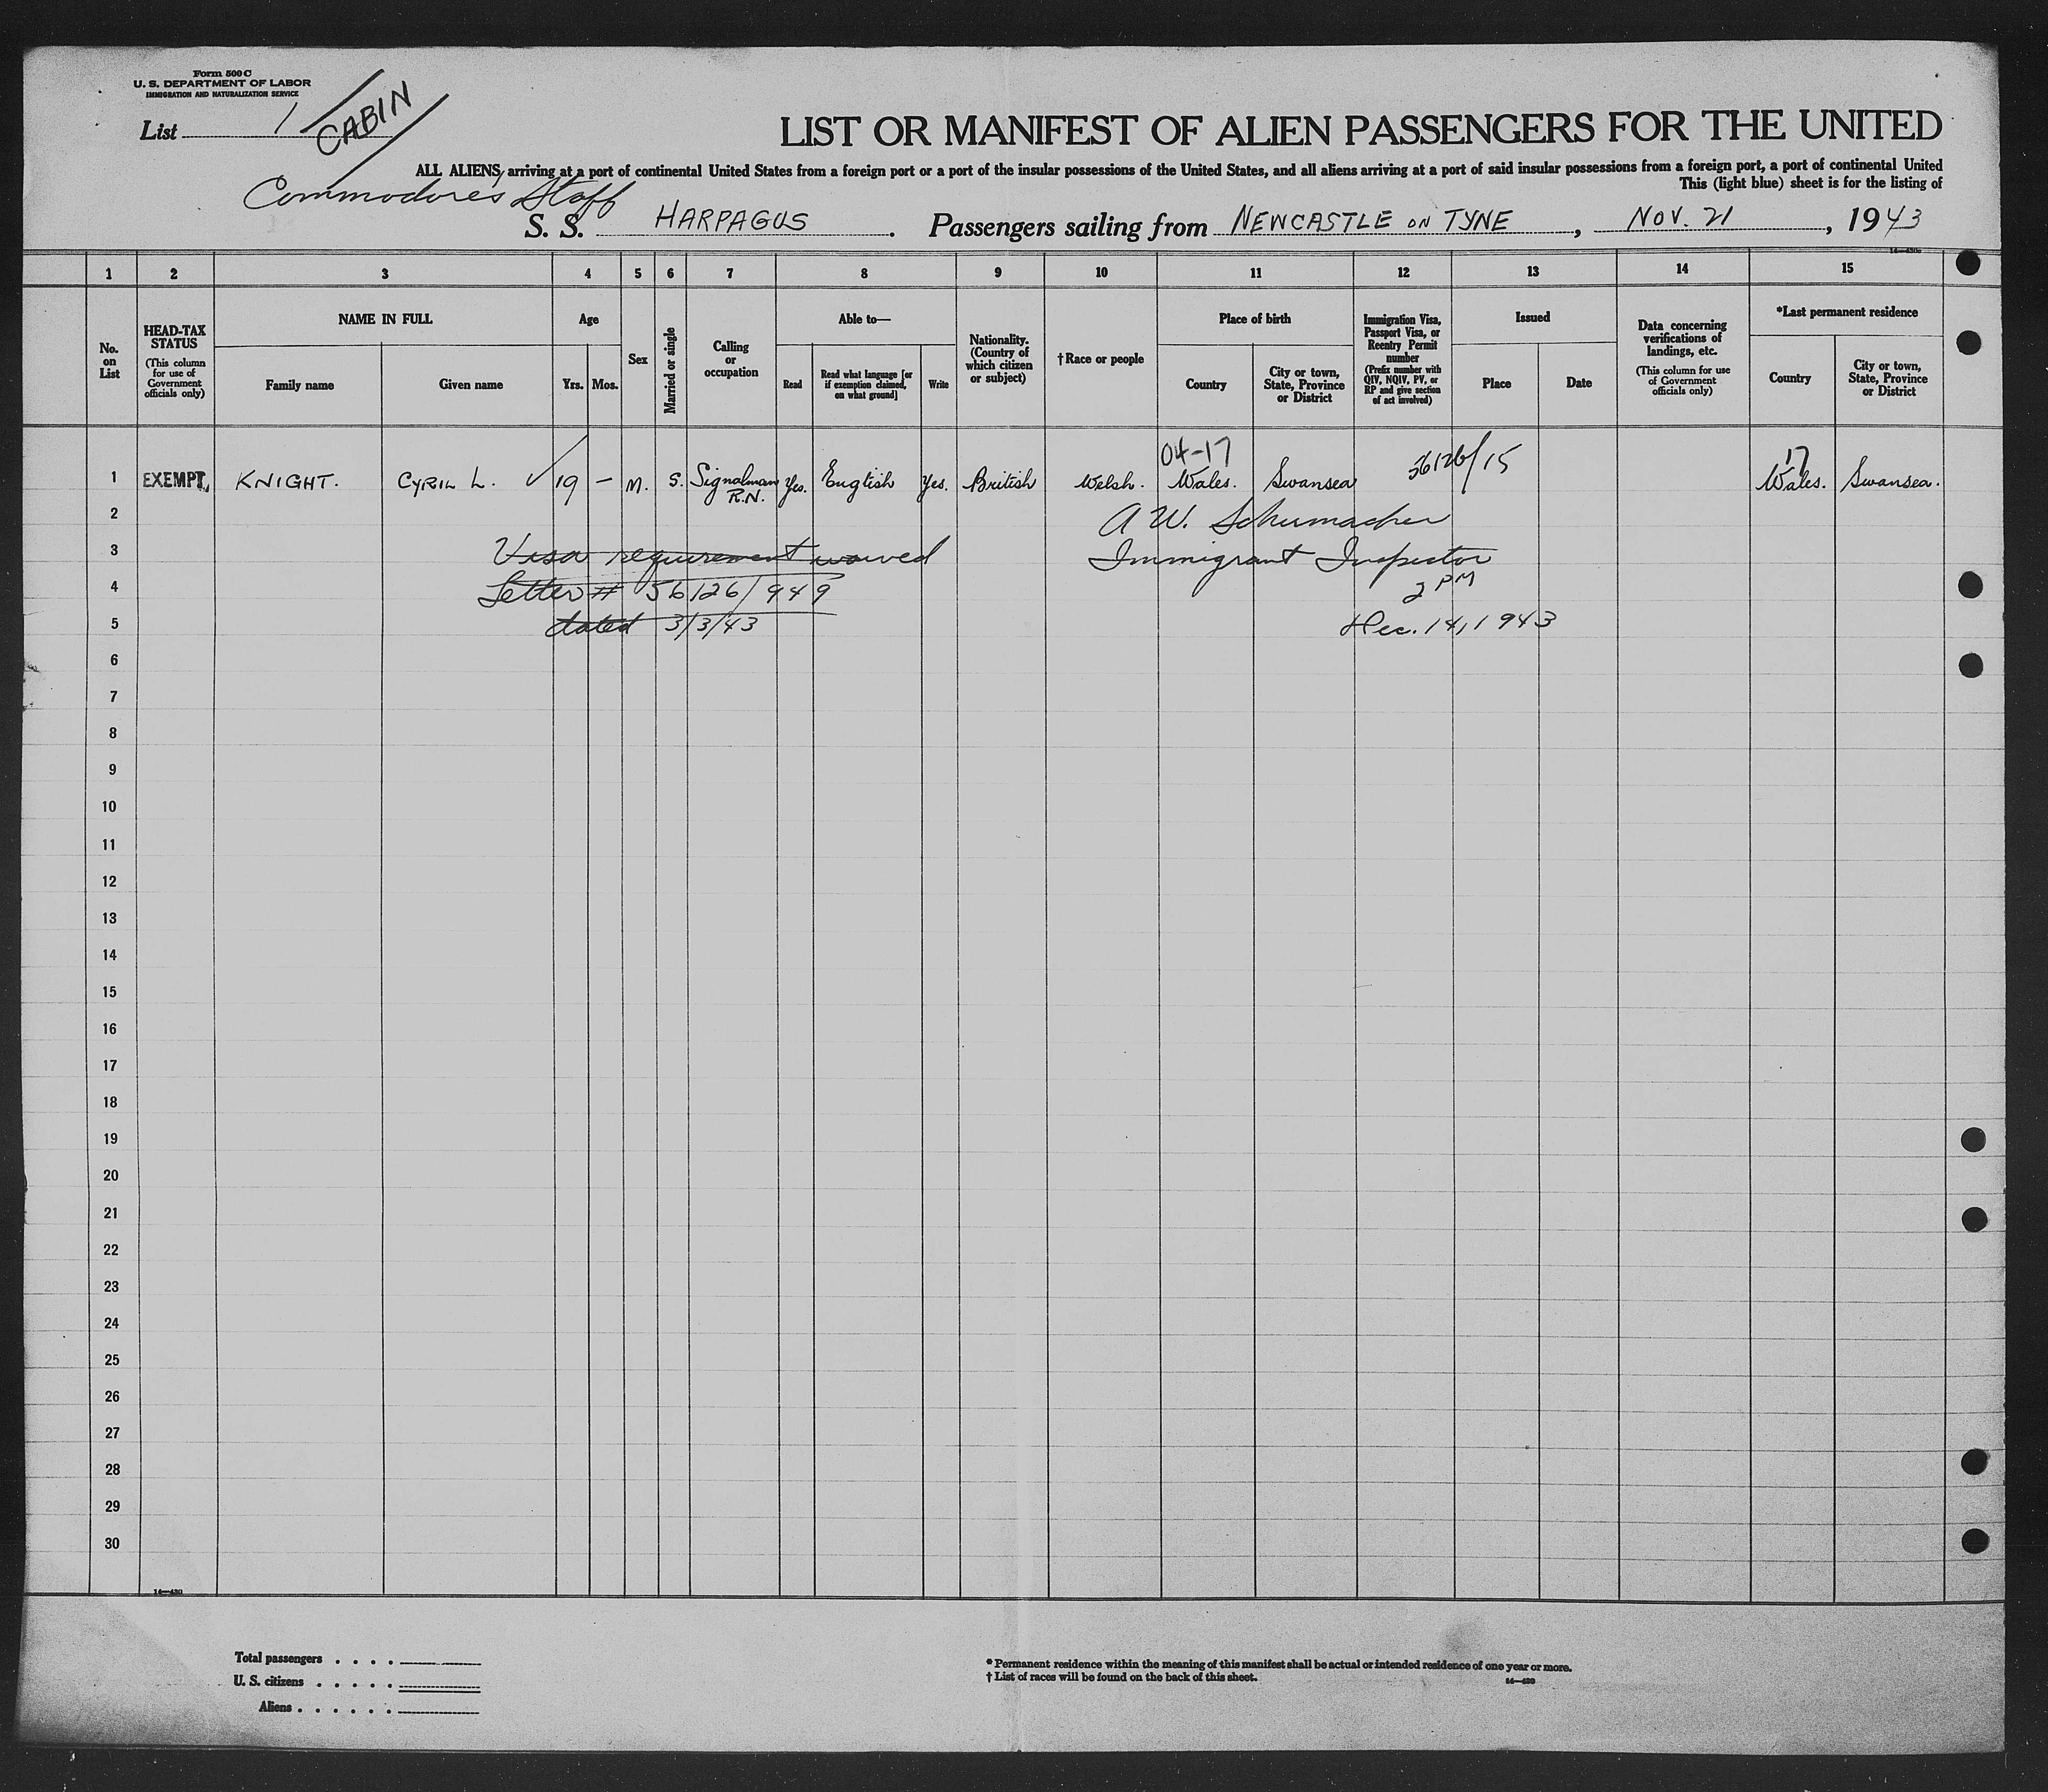 Form 500 C
U. S. DEPARTMENT OF LABOR
IMMIGRATION AND NATURALIZATION SERVICE
List 1
CABIN
LIST OR MANIFEST OF ALIEN PASSENGERS FOR THE UNITED
ALL ALIENS arriving at a port of continental United States from a foreign port or a port of the insular possessions of the United States, and all aliens arriving at a port of said insular possessions from a foreign port, a port of continental United
This (light blue) sheet is for the listing of
Commodores Staff
S. S. HARPAGUS. Passengers sailing from NEWCASTLE ON TYNE, NOV. 21, 1943
1 2 3 4 5 6 7 8 9 10 11 12 13 14 15
No. on List
HEAD-TAX STATUS (This column for use of Government officials only)
NAME IN FULL
Family name Given name
Age
Yrs. Mos.
Sex
Married or single
Calling or occupation
Able to—
Read
Read what language [or if exemption claimed, on what ground]
Write
Nationality. (Country of which citizen or subject)
†Race or people
Place of birth
Country
City or town, State, Province or District
Immigration Visa, Passport Visa, or Reentry Permit number (Prefix number with QIV, NQIV, PV, or RP and give section of act involved)
Issued
Place Date
Data concerning verifications of landings, etc. (This column for use of Government officials only)
*Last permanent residence
Country
City or town, State, Province or District
04-17 17
1 EXEMPT. KNIGHT. CYRIL L. ✓ 19 — M. S. Signalman R.N. Yes. English Yes. British Welsh. Wales. Swansea 56126/15 Wales. Swansea.
2 A W. Schumacher
3 Visa requirement waived Immigrant Inspector
4 Letter # 56126/949 2 PM
5 dated 3/3/43 Dec. 14, 1943
6
7
8
9
10
11
12
13
14
15
16
17
18
19
20
21
22
23
24
25
26
27
28
29
30
Total passengers . . . .
U. S. citizens . . . . .
Aliens . . . . . .
* Permanent residence within the meaning of this manifest shall be actual or intended residence of one year or more.
† List of races will be found on the back of this sheet.